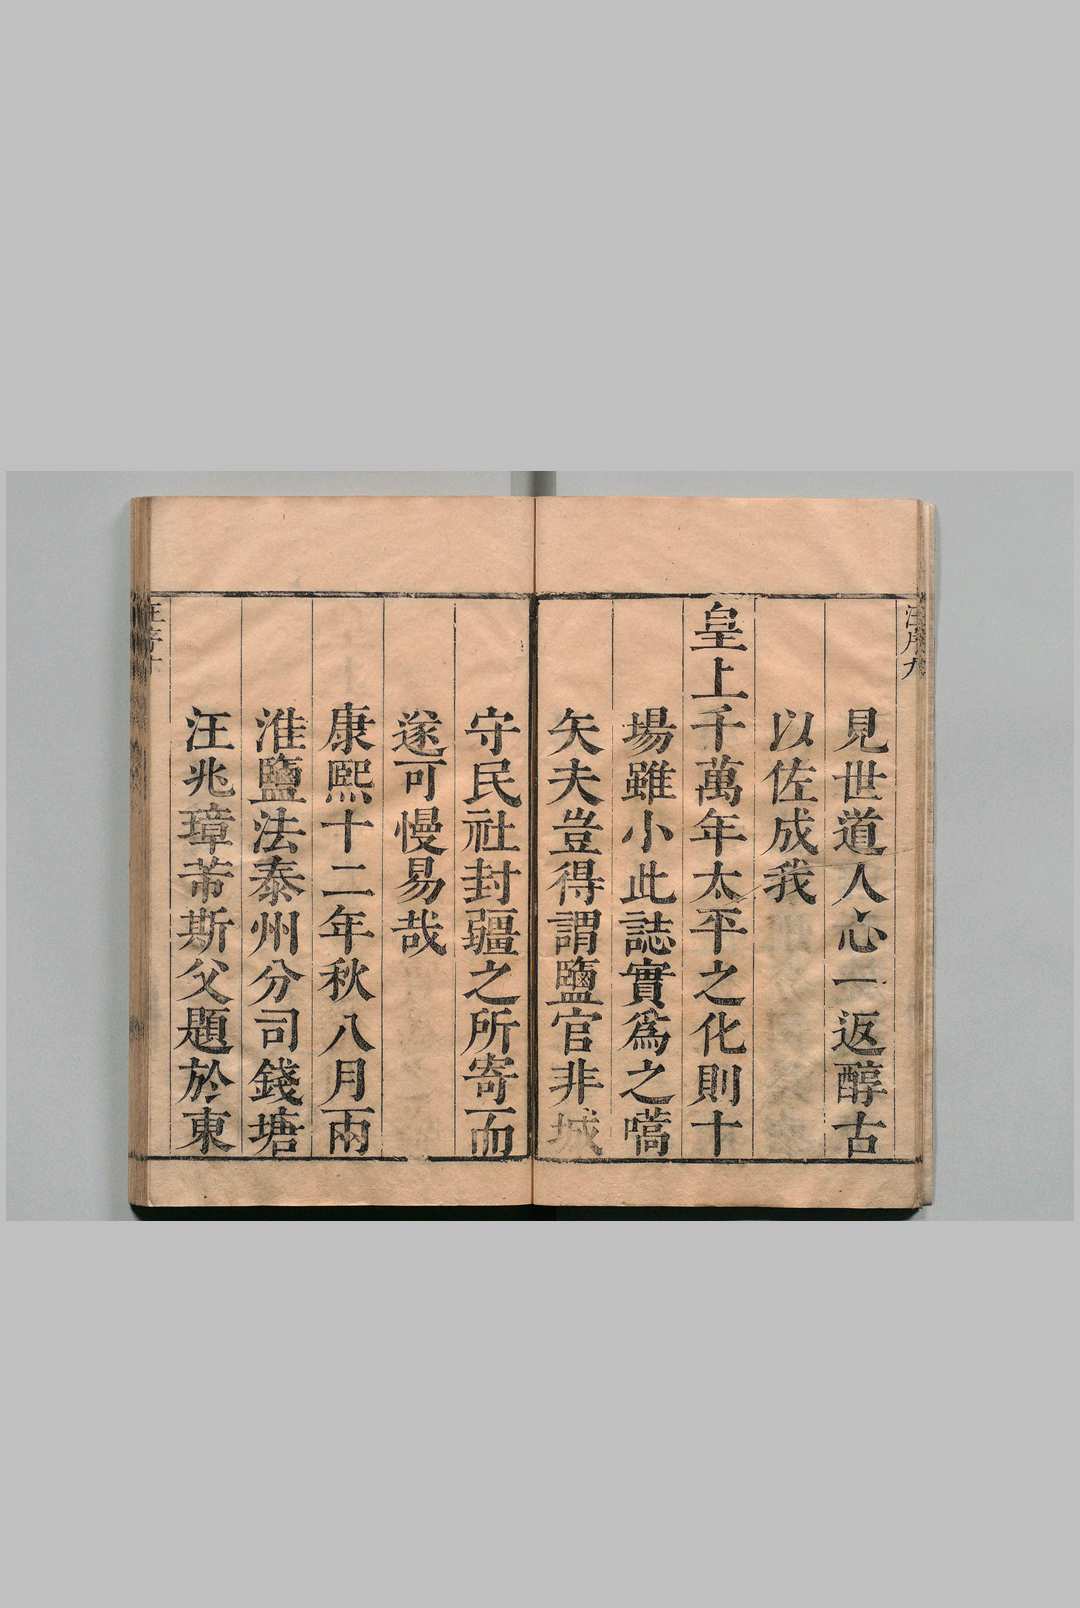 汪序九
見世道人心一返醇古
以佐成我
皇上千萬年太平之化則十
場雖小此誌實爲之嚆
矢夫豈得謂鹽官非城
守民社封疆之所寄而
遂可慢易哉
康熙十二年秋八月兩
淮鹽法泰州分司錢塘
汪兆璋芾斯父題於東
汪序十